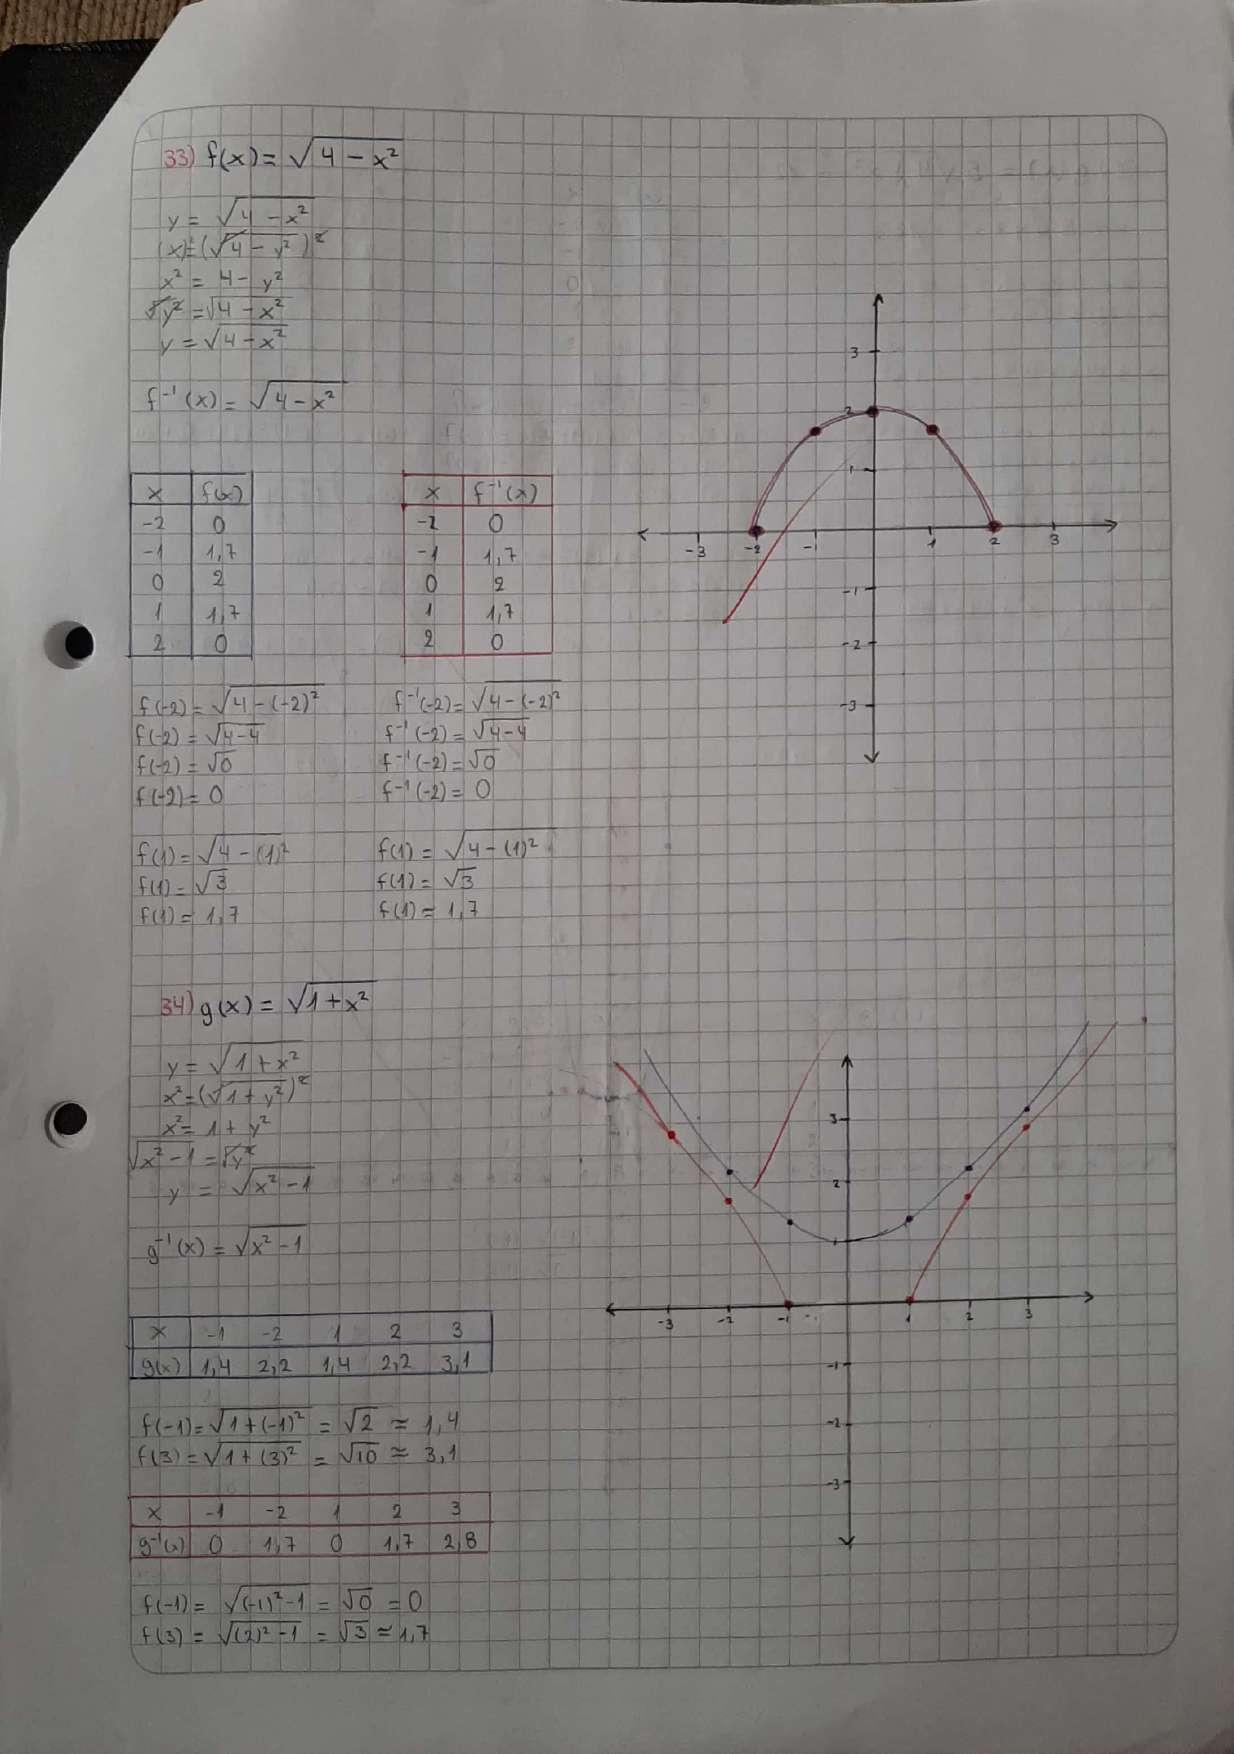 33) f(x) = √4 - x²
y = √4 - x²
(x)² = (√4 - y²)²
x² = 4 - y²
√y² = √4 - x²
y = √4 - x²
f⁻¹(x) = √4 - x²
x f(x)
-2 0
-1 1,7
0 2
1 1,7
2 0
x f⁻¹(x)
-2 0
-1 1,7
0 2
1 1,7
2 0
3
2
1
-3 -2 -1 1 2 3
-1
-2
-3
f(-2) = √4 - (-2)²
f(-2) = √4-4
f(-2) = √0
f(-2) = 0
f⁻¹(-2) = √4 - (-2)²
f⁻¹(-2) = √4-4
f⁻¹(-2) = √0
f⁻¹(-2) = 0
f(1) = √4 - (1)²
f(1) = √3
f(1) = 1,7
f(1) = √4 - (1)²
f(1) = √3
f(1) = 1,7
34) g(x) = √1 + x²
y = √1 + x²
x² = (√1 + y²)²
x² = 1 + y²
√x² - 1 = √y²
y = √x² - 1
g⁻¹(x) = √x² - 1
x -1 -2 1 2 3
g(x) 1,4 2,2 1,4 2,2 3,1
f(-1) = √1 + (-1)² = √2 ≈ 1,4
f(3) = √1 + (3)² = √10 ≈ 3,1
x -1 -2 1 2 3
g⁻¹(x) 0 1,7 0 1,7 2,8
f(-1) = √(-1)² - 1 = √0 = 0
f(3) = √(2)² - 1 = √3 ≈ 1,7
3
2
1
-3 -2 -1 1 2 3
-1
-2
-3